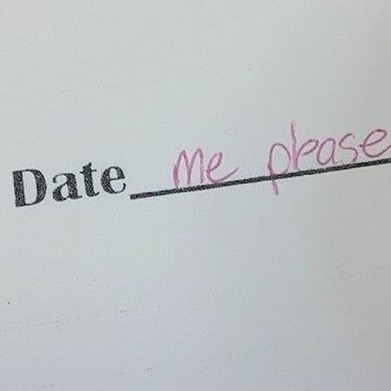 Date me please